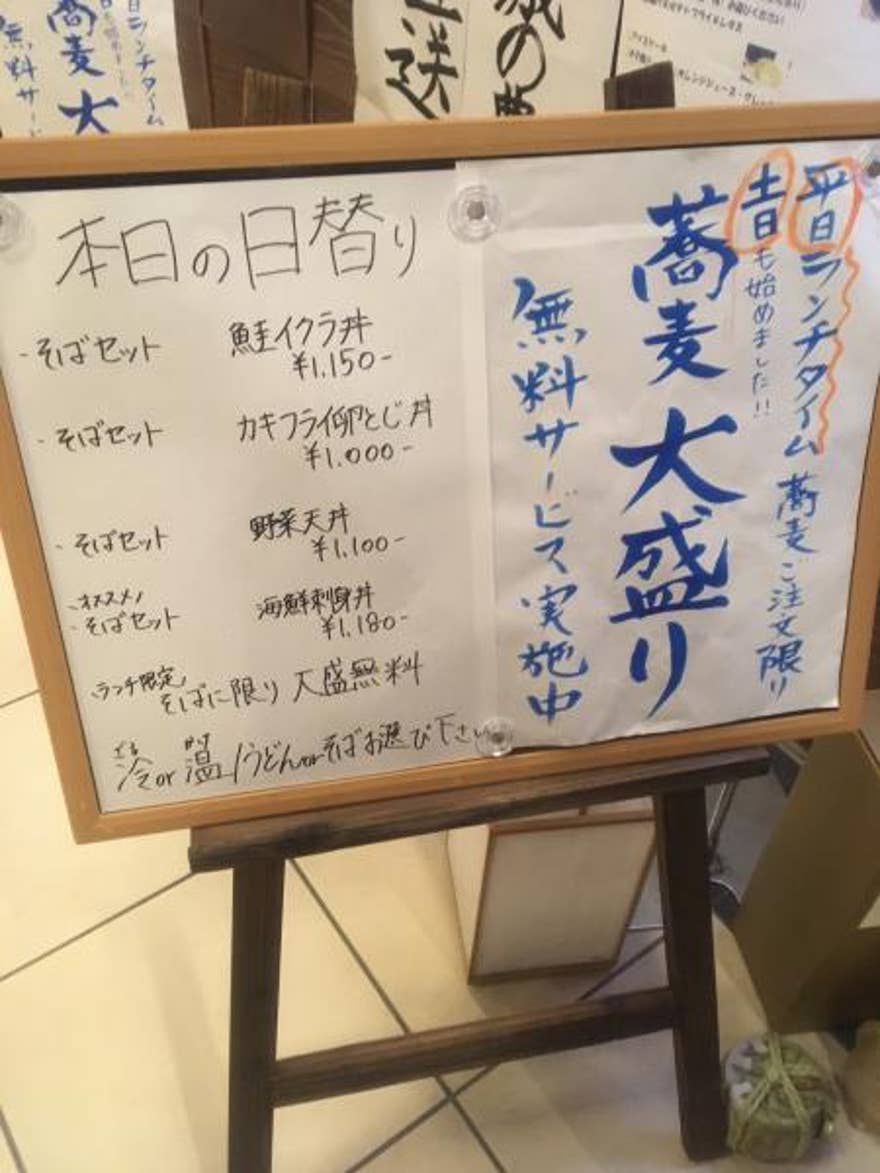 本日の日替り
・そばセット 鮭イクラ丼
¥1.150-
・そばセット カキフライ卵とじ丼
¥1.000-
・そばセット 野菜天丼
¥1.100-
・オススメ♪
・そばセット 海鮮刺身丼
¥1.180-
ランチ限定
そばに限り 大盛無料
ざる かけ
冷or温/うどんorそばお選び下さい
平日ランチタイム蕎麦ご注文限り
土日も始めました!!
蕎麦大盛り
無料サービス実施中
日ランチタイム
蕎麦大
無料サー
送
の